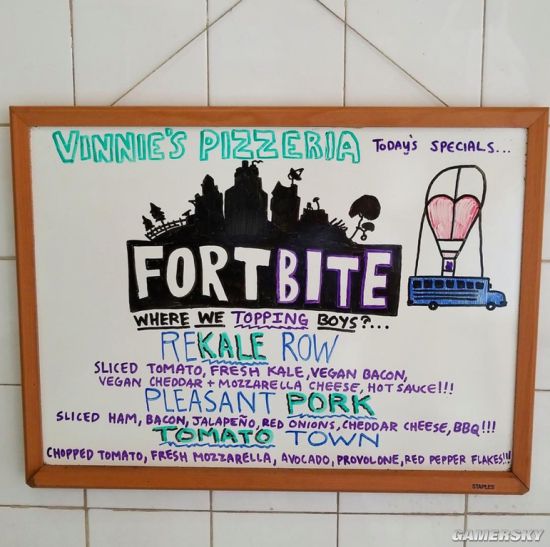 VINNIE'S PIZZERIA TODAY'S SPECIALS...
FORTBITE
WHERE WE TOPPING BOYS?...
REKALE ROW
SLICED TOMATO, FRESH KALE, VEGAN BACON,
VEGAN CHEDDAR + MOZZARELLA CHEESE, HOT SAUCE!!!
PLEASANT PORK
SLICED HAM, BACON, JALAPEÑO, RED ONIONS, CHEDDAR CHEESE, BBQ!!!
TOMATO TOWN
CHOPPED TOMATO, FRESH MOZZARELLA, AVOCADO, PROVOLONE, RED PEPPER FLAKES!!!
STAPLES
GAMERSKY